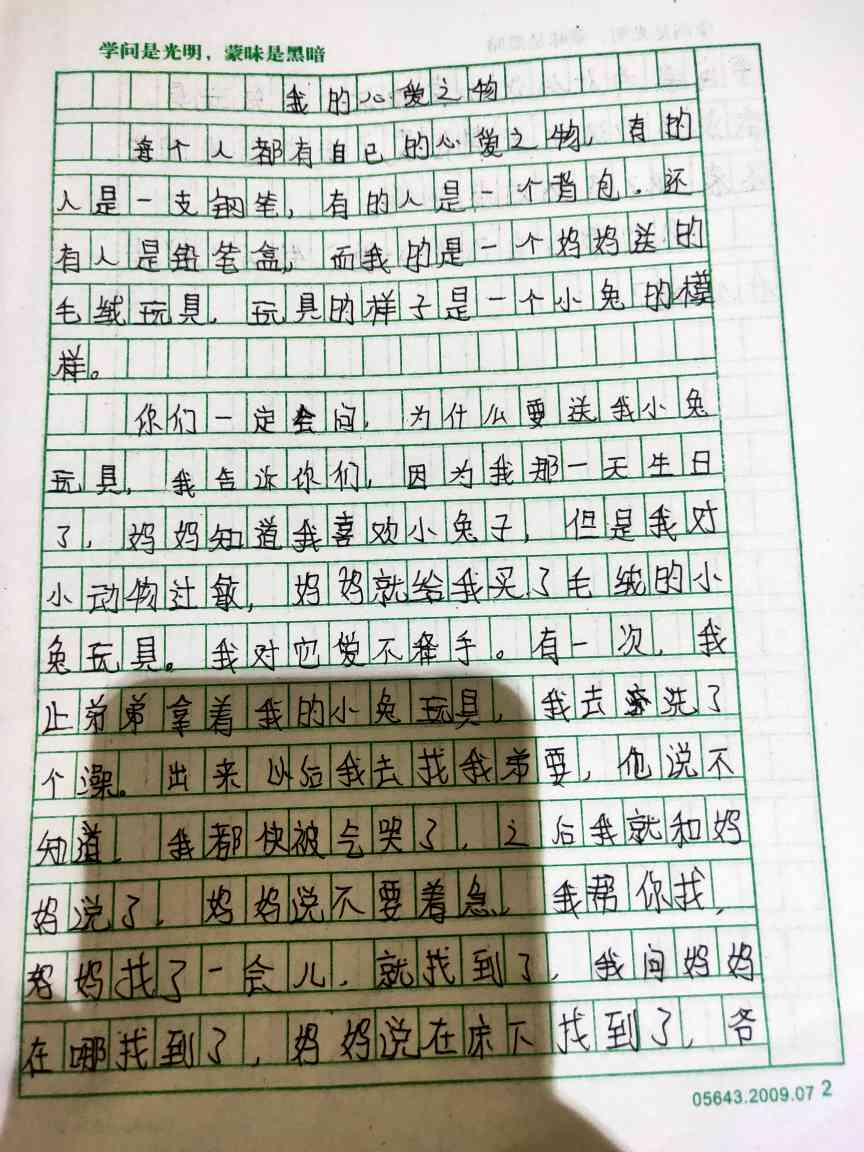 学问是光明，蒙昧是黑暗
我的心爱之物
每个人都有自己的心爱之物，有的
人是一支钢笔，有的人是一个背包．还
有人是铅笔盒，而我的是一个妈妈送的
毛绒玩具，玩具的样子是一个小兔的模
样。
你们一定会问，为什么要送我小兔
玩具，我告诉你们，因为我那一天生日
了，妈妈知道我喜欢小兔子，但是我对
小动物过敏，妈妈就给我买了毛绒的小
兔玩具。我对它爱不释手。有一次，我
让弟弟拿着我的小兔玩具，我去洗了
个澡。出来以后我去找我弟要，他说不
知道，我都快被气哭了，之后我就和妈
妈说了，妈妈说不要着急，我帮你找，
妈妈找了一会儿，就找到了，我问妈妈
在哪找到了，妈妈说在床下找到了，各
05643.2009.07 2